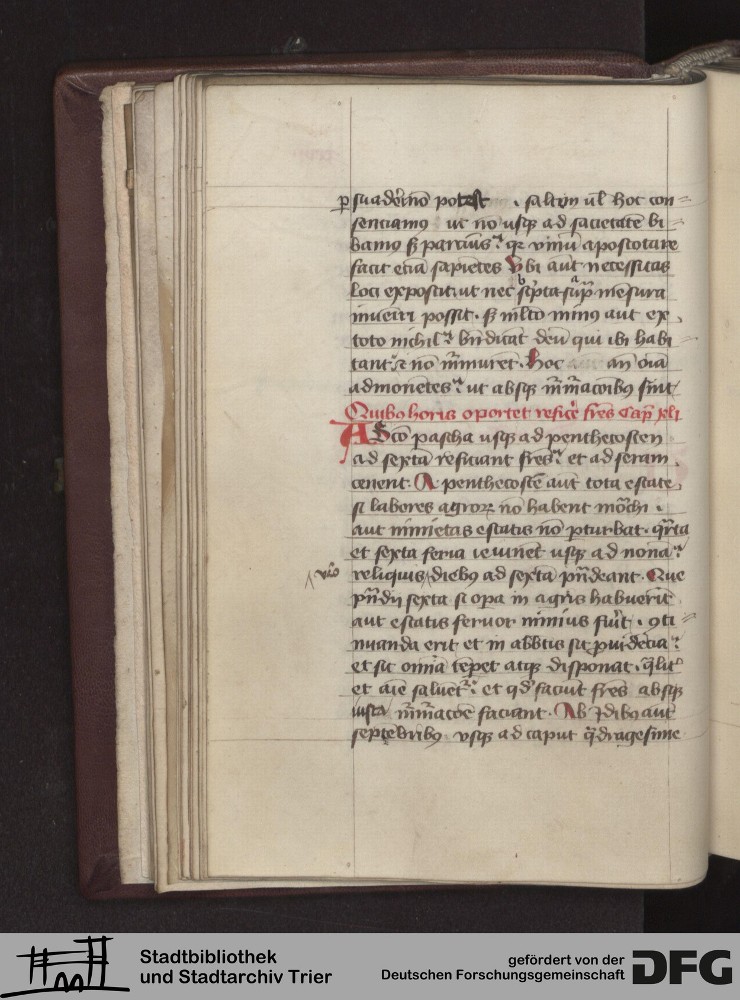 ꝑsuaderi nō potest . saltim ul̄ hoc con⸗
senciamꝯ ut nō usqꝫ ad sacietatē bi⸗
bamꝯ sꝫ parcius qꝛ vinū apostotare
facit eciā sapiētes Vbi aūt necessitas
loci exposcit ut nec sc̄pta sup̄ mēsura
inueiri possit . sꝫ ml̄to minꝯ aut ex
toto nichil bn̄dicāt deū qui ibi habi
tant ⁊ nō m̄muret . Hoc an̄ oīa
admonētes ut absqꝫ m̄m̄acōibꝯ sint
Quibꝯ horis oportet refic̄e fr̄es Cap̄ xli
A Sc̄o pascha usqꝫ ad penthecosten
ad sextā reficiant fr̄es et ad seram
cenent . A penthecostē aūt tota estate
si labores agroꝝ nō habent mōchi .
aut nimietas estatis nō ꝑturbat . q̄rta
et sexta feria ieiunēt usqꝫ ad nonā
reliquis vͦo diebꝯ ad sextā pn̄deant . Que
pn̄dij sexta si oꝑa in agris habuerīt
aut estatis feruor nimius fūit . ꝯti⸗
nuanda erit et in abb̄tis sit ꝓuidēcia
et sic omīa tēꝑet atqꝫ disponat . q̄lit̄
et aīe saluēt̄ et qd̄ faciūt fr̄es absqꝫ
iusta m̄m̄acōe faciant . Ab Idibꝯ aūt
septēbribꝯ vsqꝫ ad caput q̄dragesime
Stadtbibliothek
und Stadtarchiv Trier
gefördert von der
Deutschen Forschungsgemeinschaft
DFG